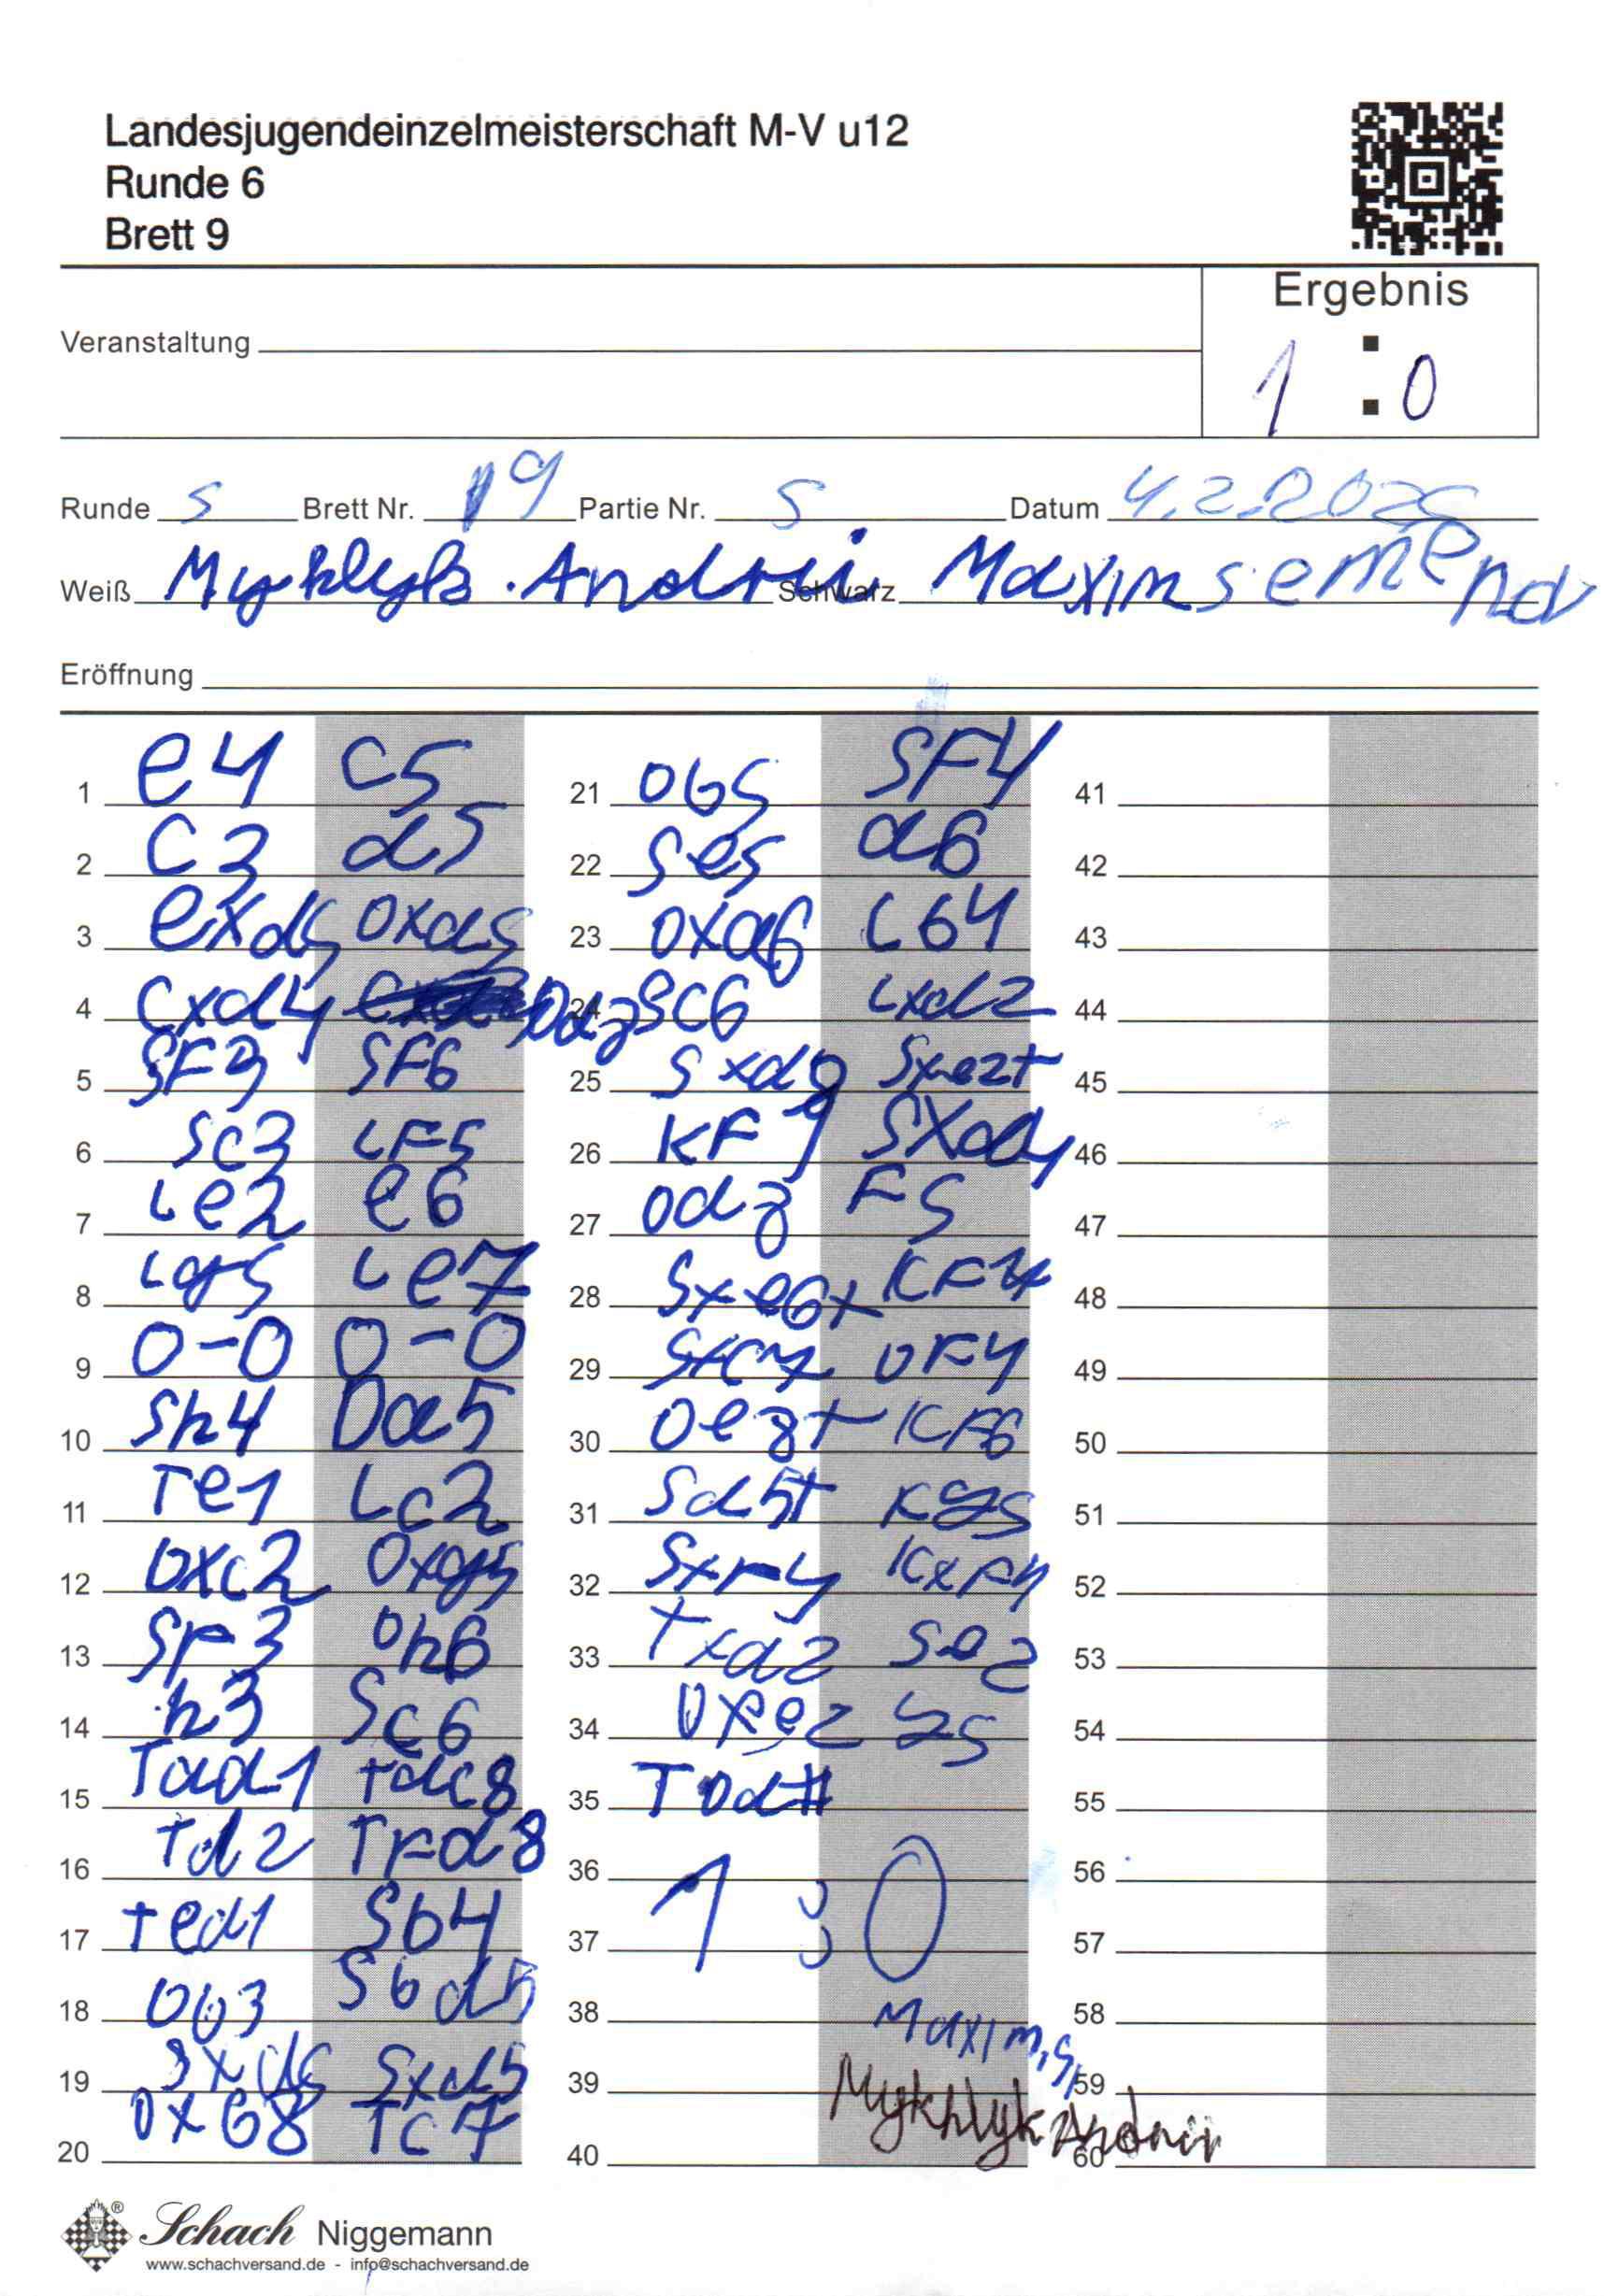 Landesjugendeinzelmeisterschaft M-V u12
Runde 6
Brett 9
Ergebnis
1 : 0
Veranstaltung
Runde 5 Brett Nr. 19 Partie Nr. 5 Datum 4.2.2026
Weiß Mykhlyk Andrii Schwarz Maxim semend
Eröffnung
1 e4 c5
2 c3 d5
3 exd5 Dxd5
4 cxd4 Dd8
5 SF3 SF6
6 Sc3 LF5
7 Le2 e6
8 Lg5 Le7
9 0-0 0-0
10 Sh4 Da5
11 Te1 Lc2
12 Dxc2 Dxg5
13 SF3 Dh6
14 h3 Sc6
15 Tad1 Tac8
16 Td2 TFd8
17 Ted1 Sb4
18 Db3 Sbd5
19 Sxd5 Sxd5
20 Dxb8 Tc7
21 Db5 SF4
22 Se5 a6
23 Dxa6 Lb4
24 Sc6 Lxd2
25 Sxd8 Sxe2+
26 KF1 Sxd4
27 Dd8 F5
28 Sxe6+ KF7
29 Sxc7 DF4
30 De8+ KF6
31 Sd5+ Kg5
32 SxF4 KxF4
33 Txd2 Se2
34 Dxe2 g5
35
36
37
38
39
40
1 : 0
Maxim.S
Mykhlyk Andrii
41
42
43
44
45
46
47
48
49
50
51
52
53
54
55
56
57
58
59
60
Schach Niggemann
www.schachversand.de - info@schachversand.de